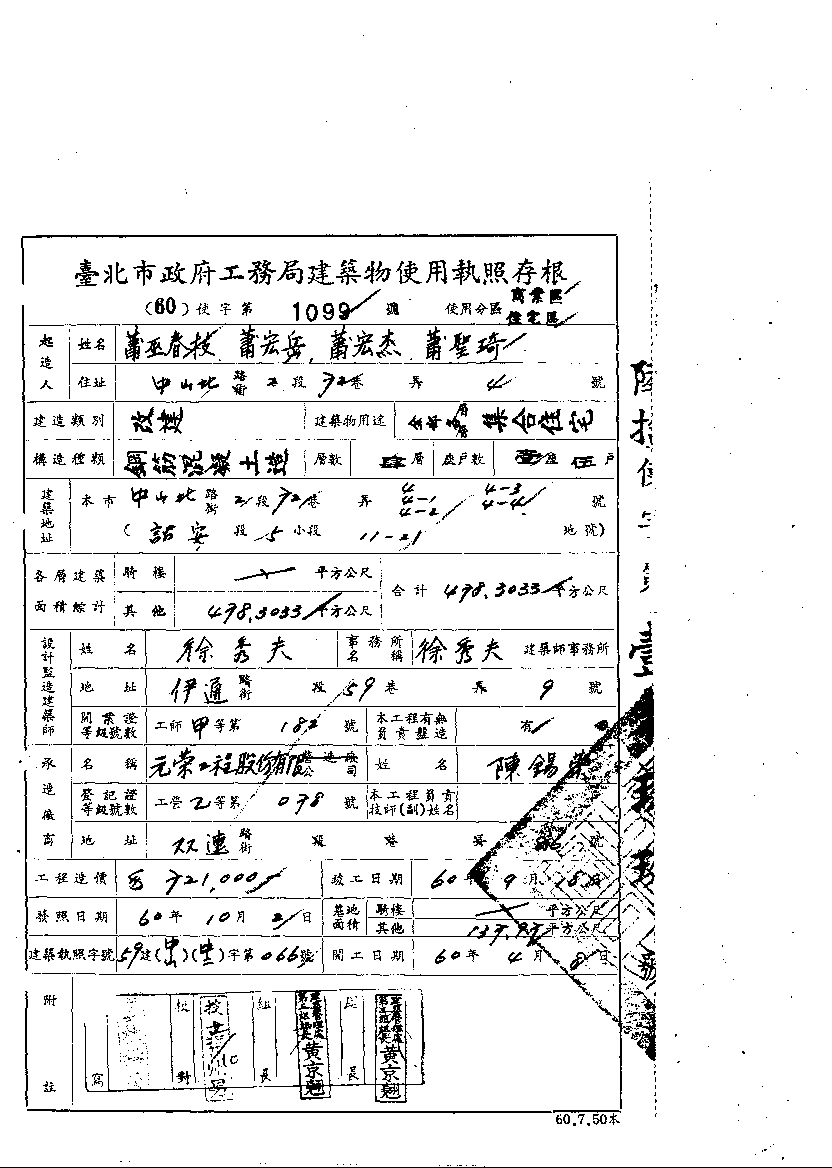 臺北市政府工務局建築物使用執照存根
(60)使字第 1099 號 使用分區 商業區 住宅區
起造人 姓名 蕭巫春枝 蕭宏岳 蕭宏杰 蕭聖琦
住址 中山北 路街 2 段 72 巷 弄 4 號
建造類別 改建 建築物用途 集合住宅
構造種類 鋼筋混凝土造 層數 肆 層 座戶數 壹 座 伍 戶
建築地址 本市 中山北 路街 2 段 72 巷 弄 4 4-1 4-2 4-3 4-4 號
( 段 5 小段 11-21 地號)
各層建築面積綜計 騎樓 平方公尺 合計 498.3033 平方公尺
其他 498.3033 平方公尺
設計監造建築師 姓名 徐秀夫 事務所名稱 徐秀夫 建築師事務所
地址 伊通 路街 段 59 巷 弄 9 號
開業證等級號數 工師 甲 等第 182 號 本工程有無負責監造 有
承造廠商 名稱 元榮工程股份有限公司 姓名 陳錫榮
登記證等級號數 工營 乙 等第 038 號 本工程負責技師(副)姓名
地址 双連 路街 段 巷 弄 號
工程造價 721,000 竣工日期 60 年 9 月 18 日
發照日期 60 年 10 月 2 日 基地面積 騎樓 平方公尺
其他 平方公尺
建築執照字號 59 建( )( )字第 066 號 開工日期 60 年 4 月 8 日
附註
寫 校對 組長 黃京翹 長 黃京翹
60.7.50本